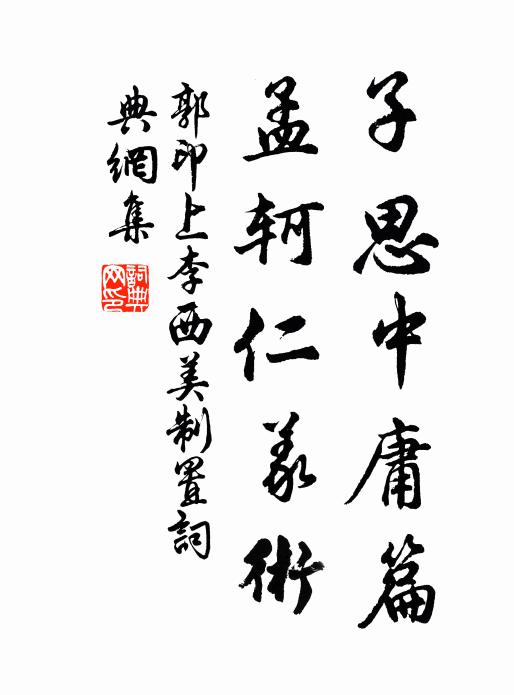 子思中庸篇
孟轲仁義術
郭印上李西美制置詞
典網集
詞典网印